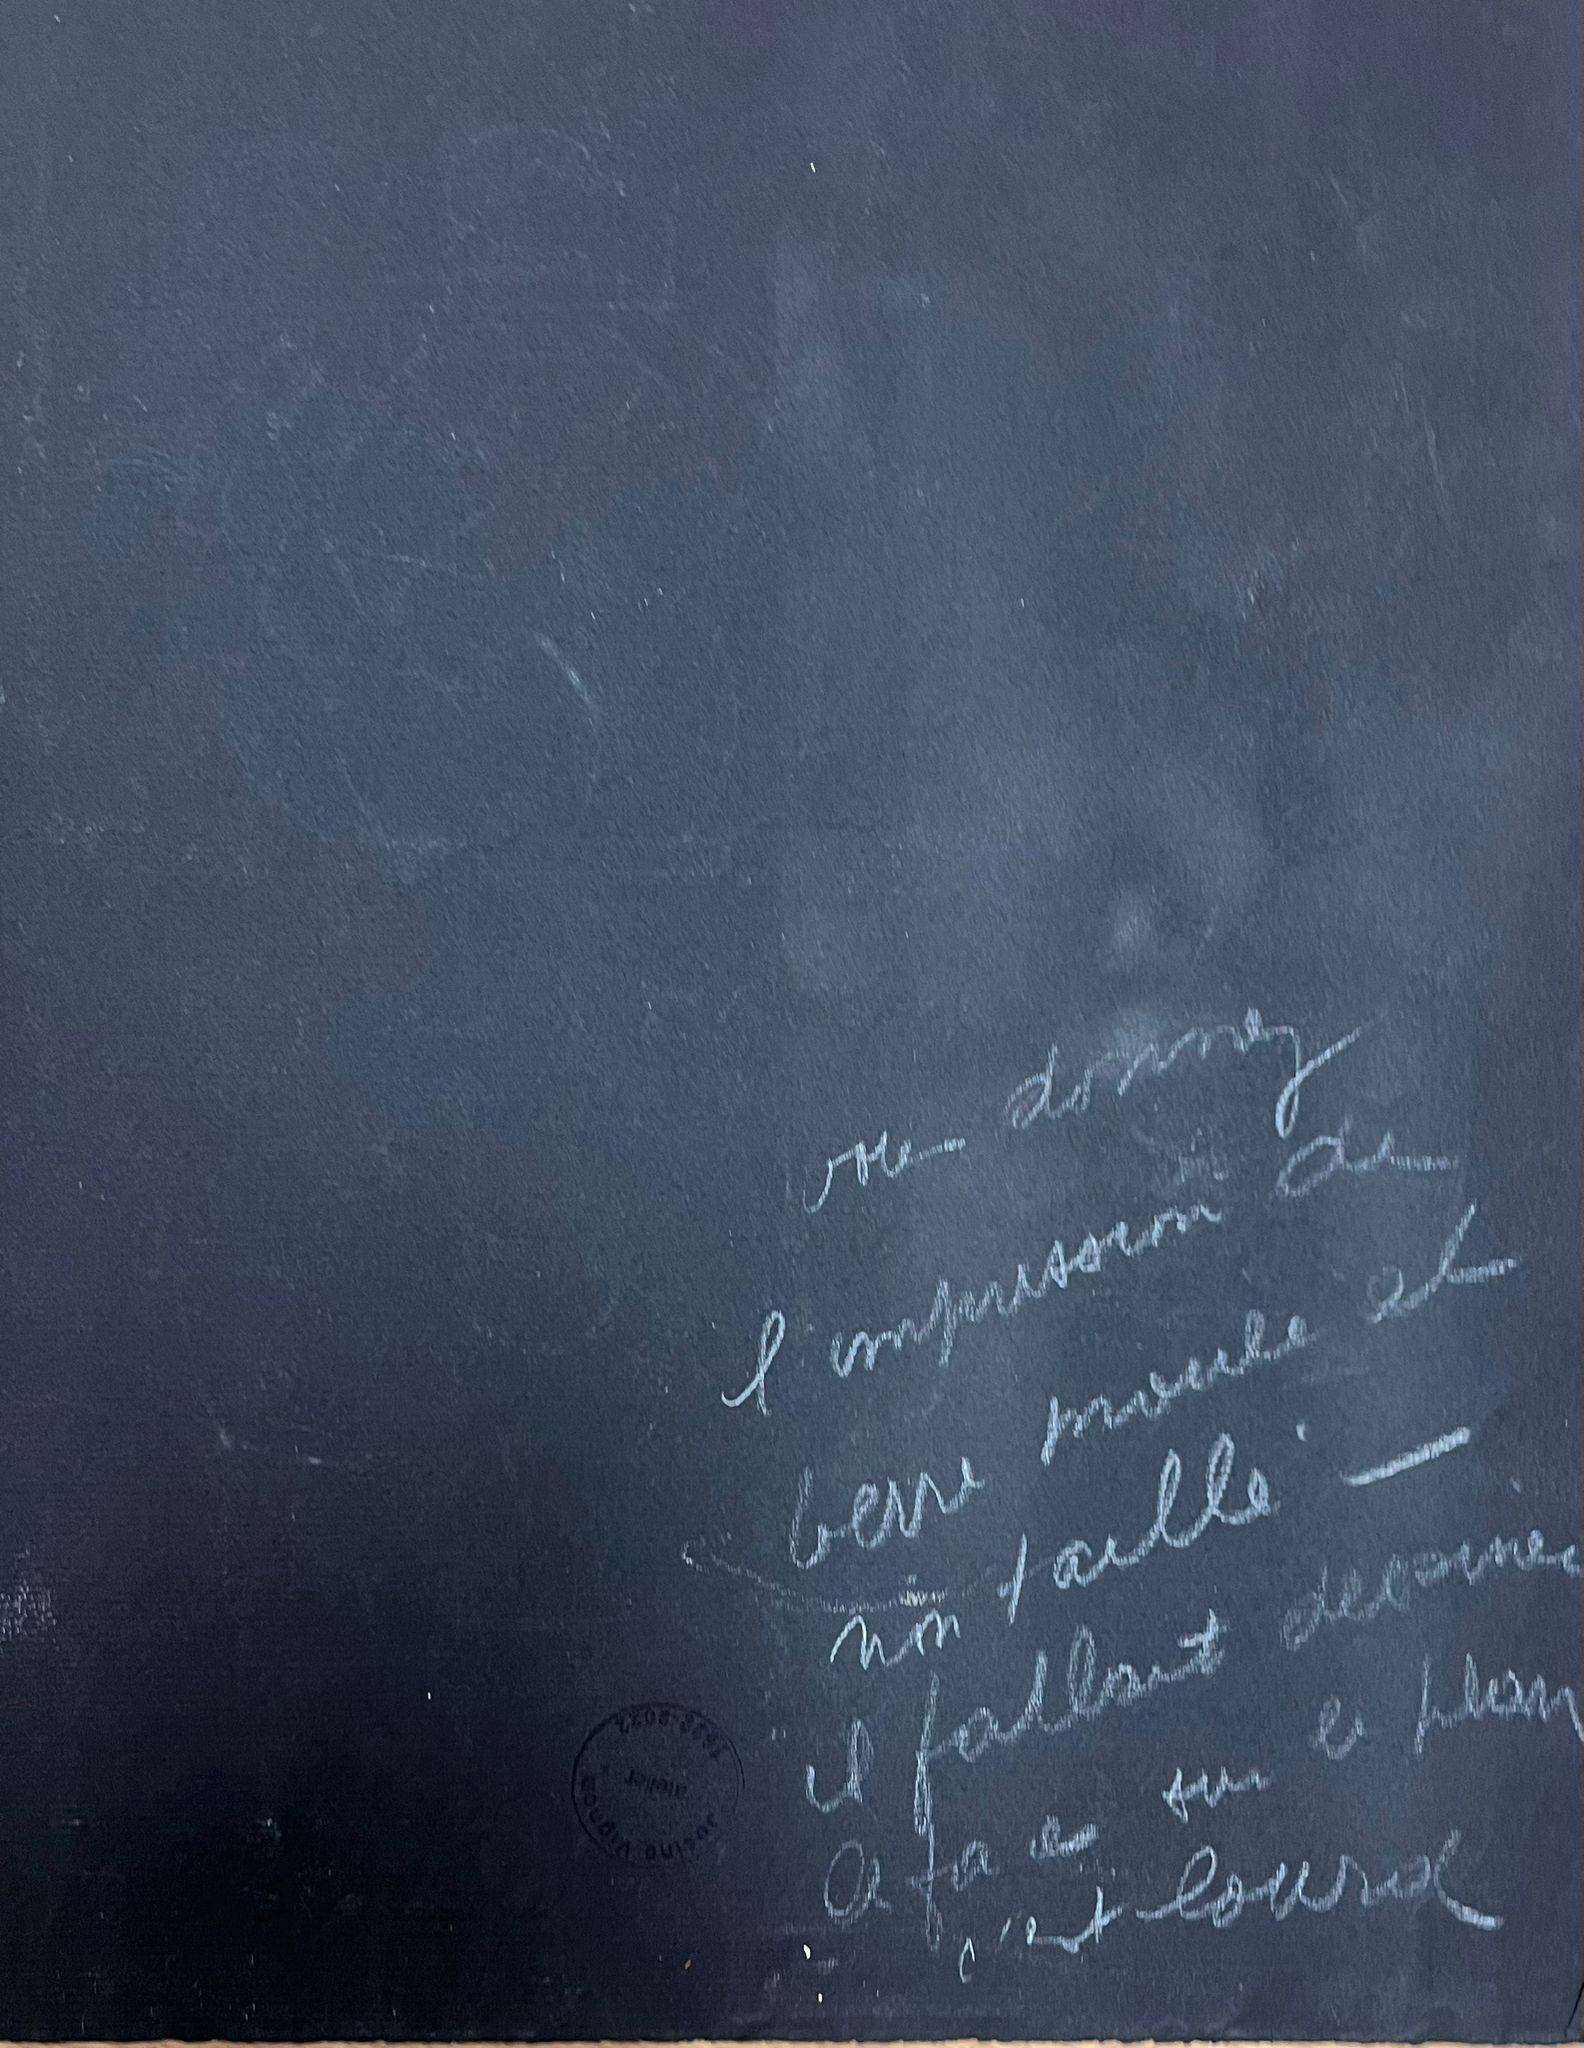 vou donnez
l'impression de
berre moule et
non taillé —
il fallait dessiner
a fa e sur le plan
c'est lourd
Josine Vignon
atelier
1922-2022